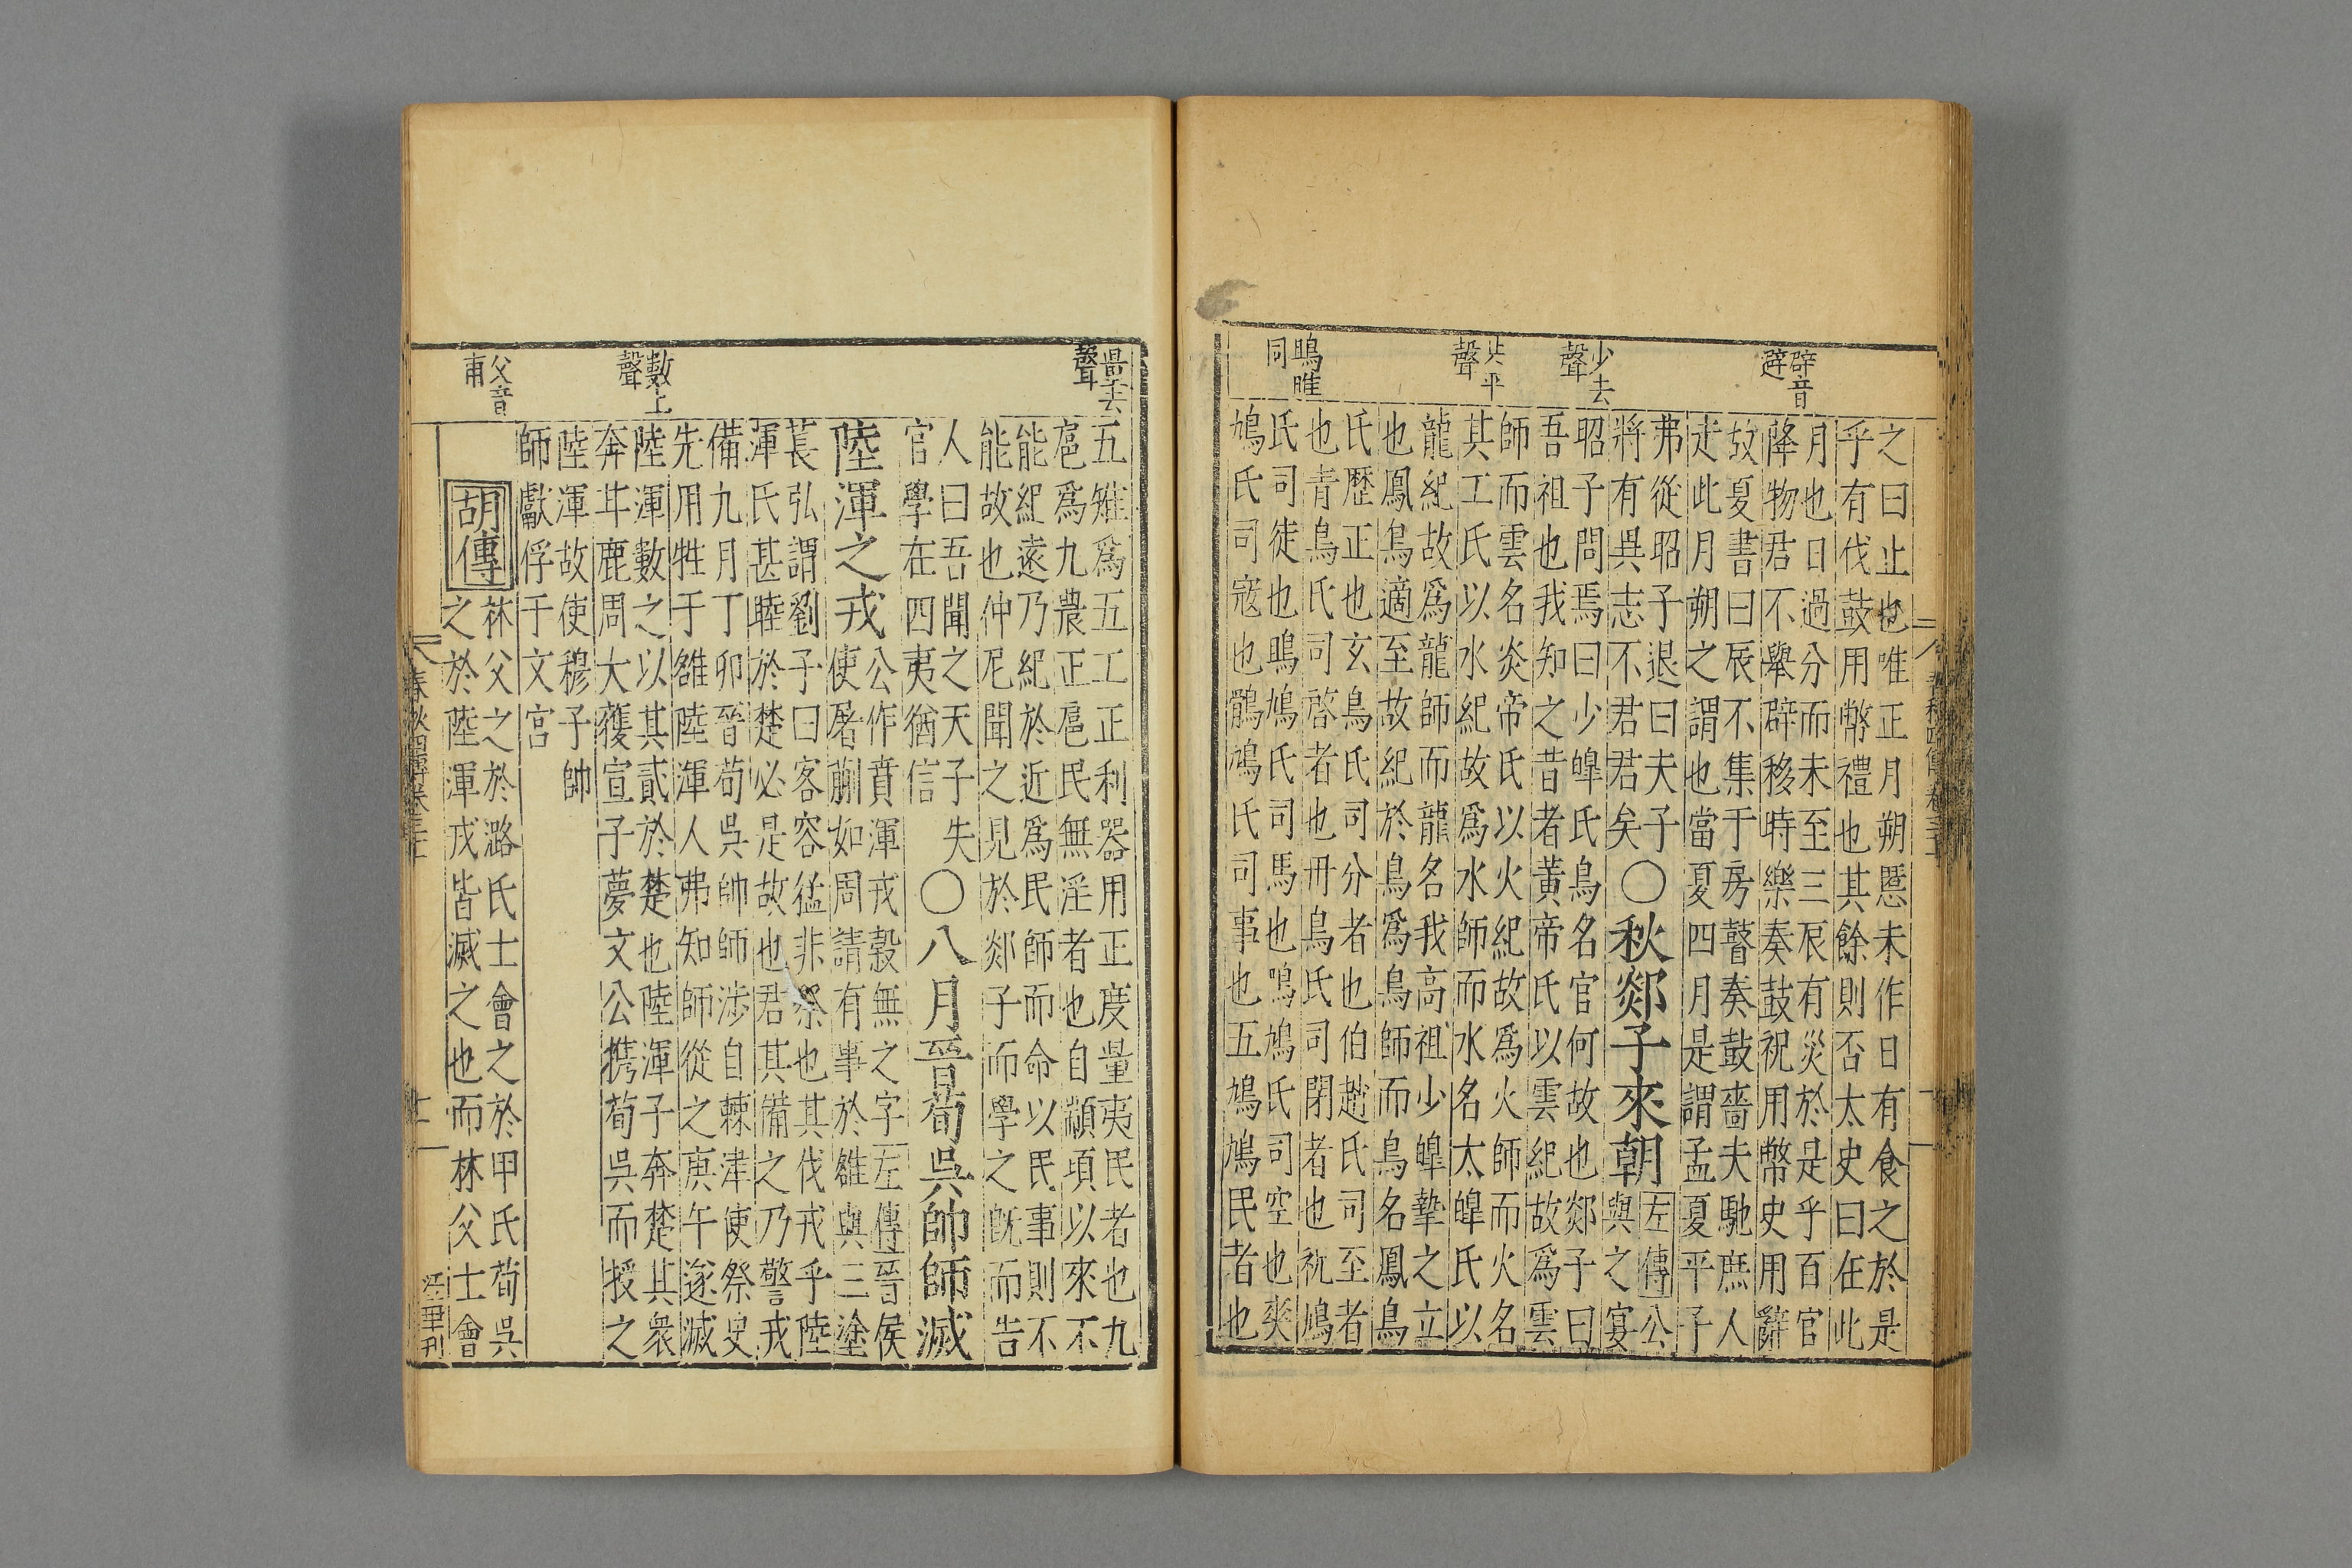 辟音
避
少去
聲
共平
聲
鴡睢
同
之曰止也唯正月朔慝未作日有食之於是
乎有伐鼓用幣禮也其餘則否太史曰在此
月也日過分而未至三辰有災於是乎百官
降物君不舉辟移時樂奏鼓祝用幣史用辭
故夏書曰辰不集于房瞽奏鼓嗇夫馳庶人
走此月朔之謂也當夏四月是謂孟夏平子
弗從昭子退曰夫子
將有異志不君君矣
〇秋郯子來朝
左傳公
與之宴
昭子問焉曰少皥氏鳥名官何故也郯子曰
吾祖也我知之昔者黃帝氏以雲紀故爲雲
師而雲名炎帝氏以火紀故爲火師而火名
共工氏以水紀故爲水師而水名太皥氏以
龍紀故爲龍師而龍名我高祖少皥摯之立
也鳳鳥適至故紀於鳥爲鳥師而鳥名鳳鳥
氏歷正也玄鳥氏司分者也伯趙氏司至者
也青鳥氏司啓者也丹鳥氏司閉者也祝鳩
氏司徒也鴡鳩氏司馬也鳲鳩氏司空也爽
鳩氏司寇也鶻鳩氏司事也五鳩鳩民者也
量去
聲
數上
聲
父音
甫
五雉爲五工正利器用正度量夷民者也九
扈爲九農正扈民無淫者也自顓頊以來不
能紀遠乃紀於近爲民師而命以民事則不
能故也仲尼聞之見於郯子而學之旣而告
人曰吾聞之天子失
官學在四夷猶信
〇八月晉荀吳帥師滅
陸渾之戎
公作賁渾戎穀無之字左傳晉侯
使屠蒯如周請有事於雒與三塗
萇弘謂劉子曰客容猛非祭也其伐戎乎陸
渾氏甚睦於楚必是故也君其備之乃警戎
備九月丁卯晉荀吳帥師涉自棘津使祭史
先用牲于雒陸渾人弗知師從之庚午遂滅
陸渾數之以其貳於楚也陸渾子奔楚其衆
奔甘鹿周大獲宣子夢文公攜荀吳而授之
陸渾故使穆子帥
師獻俘于文宮
胡傳
林父之於潞氏士會之於甲氏荀吳
之於陸渾戎皆滅之也而林父士會
春秋四傳卷三十
十一